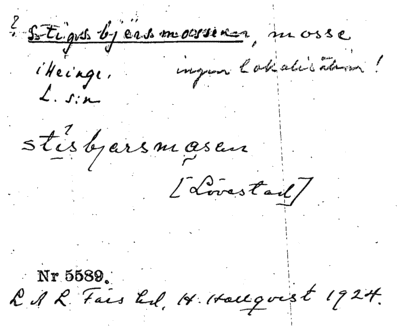 ? Stigsbjärsmossen, mosse
i Heinge. ingen lokalisation!
L. sn
stisbjarsmosen
[Lövestad]
Nr 5589.
L A L. H. Hallqvist 1924.